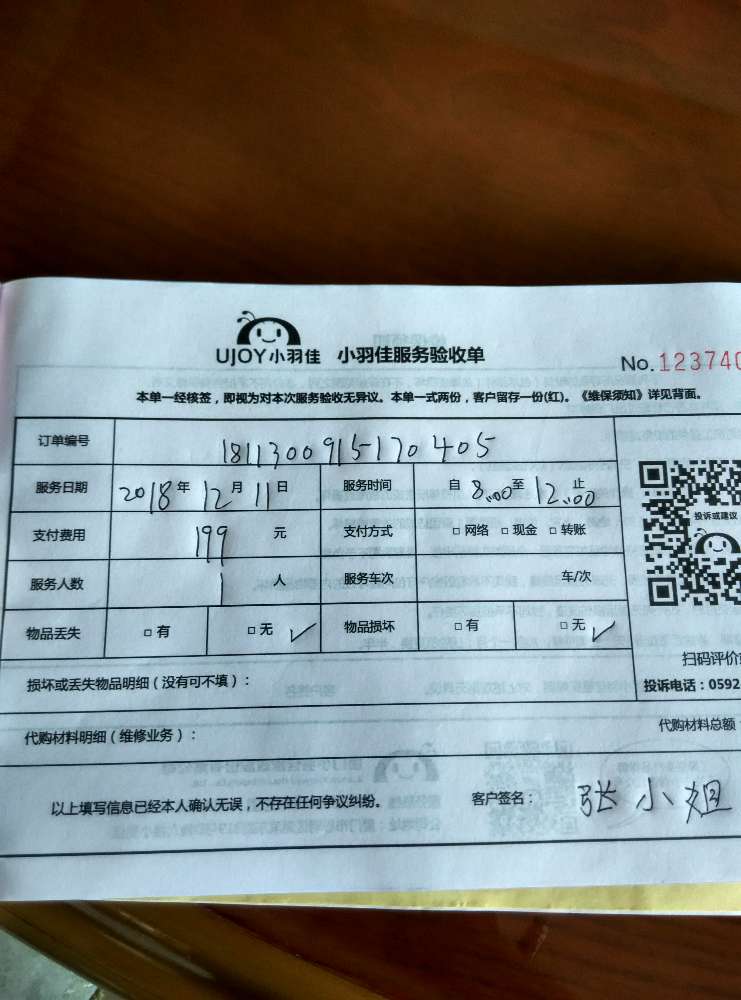 UJOY小羽佳 小羽佳服务验收单
No.123740
本单一经核签，即视为对本次服务验收无异议。本单一式两份，客户留存一份(红)。《维保须知》详见背面。
订单编号 1811300915170405
服务日期 2018年12月11日 服务时间 自8:00至12:00止
支付费用 199元 支付方式 □网络 □现金 □转账
投诉或建议
服务人数 1人 服务车次 车/次
物品丢失 □有 □无 ✓ 物品损坏 □有 □无 ✓
扫码评价
损坏或丢失物品明细（没有可不填）：
投诉电话：0592
代购材料明细（维修业务）：
代购材料总额
以上填写信息已经本人确认无误，不存在任何争议纠纷。 客户签名：张小姐